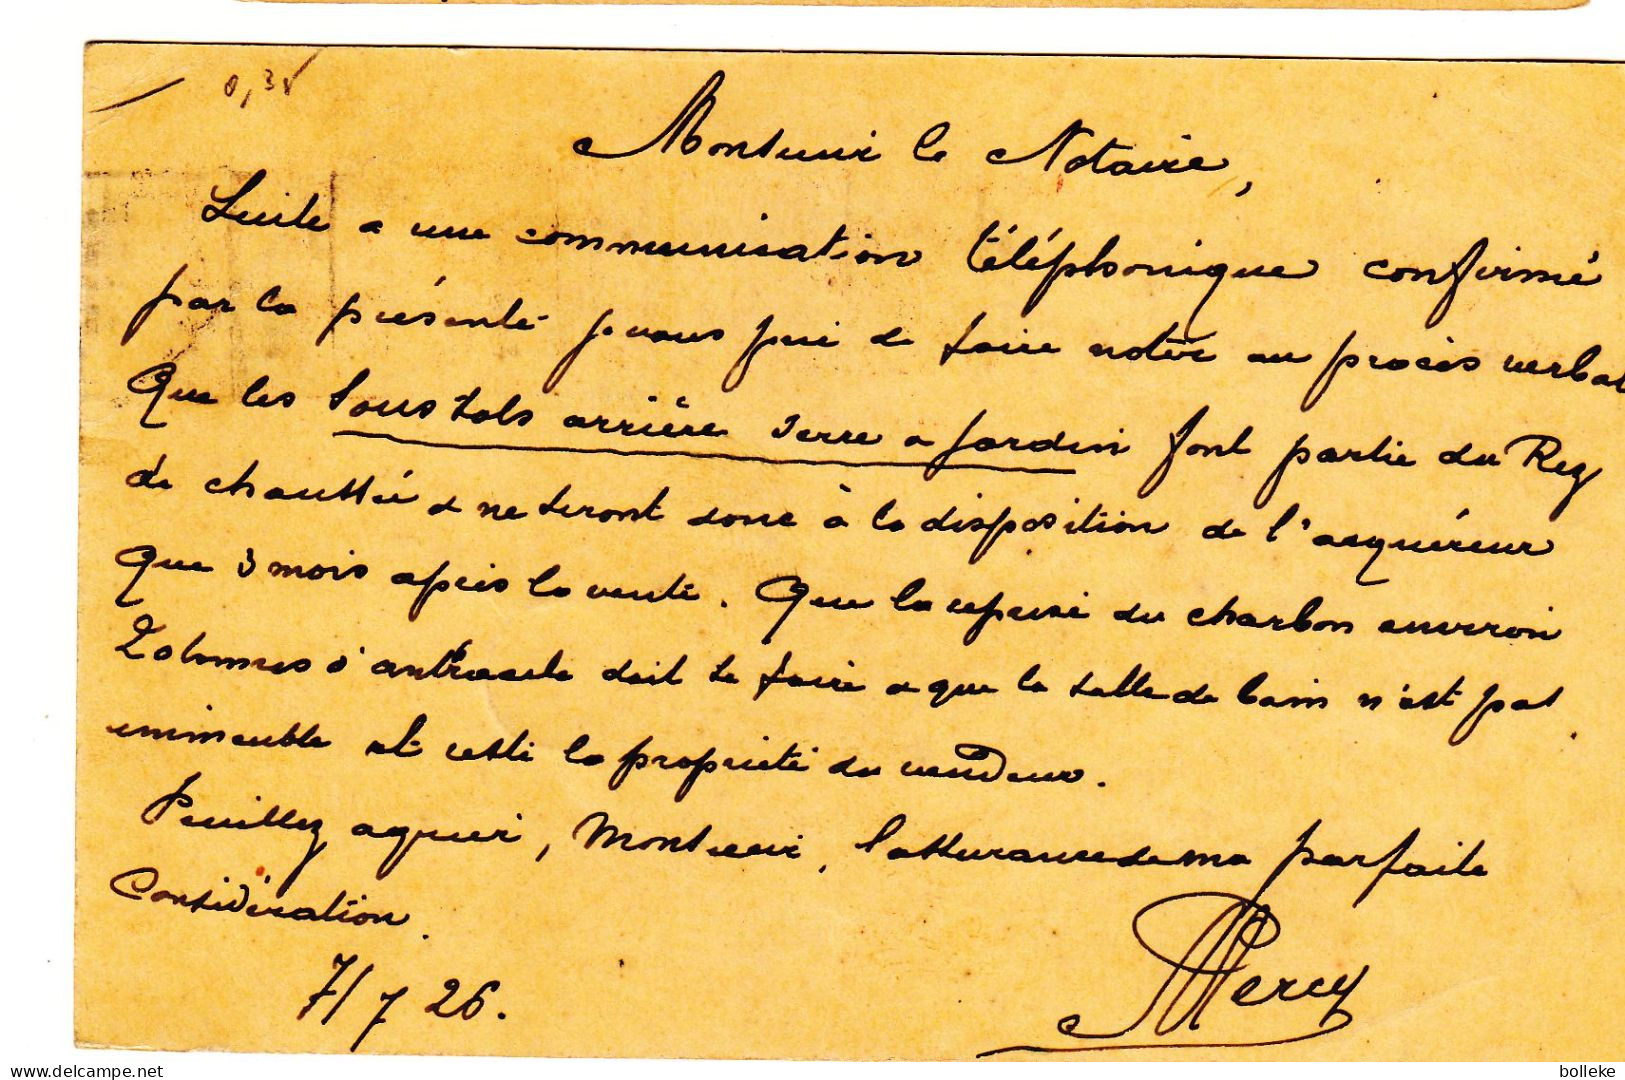 0,35
Monsieur le Notaire,
Suite a une communication téléphonique confirmé
par la présente je vous prie de faire noter au procès verbal
Que les sous sols arrière serre a jardin font partie du Rez
de chaussée & ne seront donc à la disposition de l'acquéreur
que 3 mois après la vente. Que la reprise du charbon environ
2 tonnes d'antracite doit se faire & que la salle de bain n'est pas
immeuble et reste la propriété du vendeur.
Veuillez agréer, Monsieur, l'assurance de ma parfaite
Considération.
7/7 26.
Mercy
bolleke